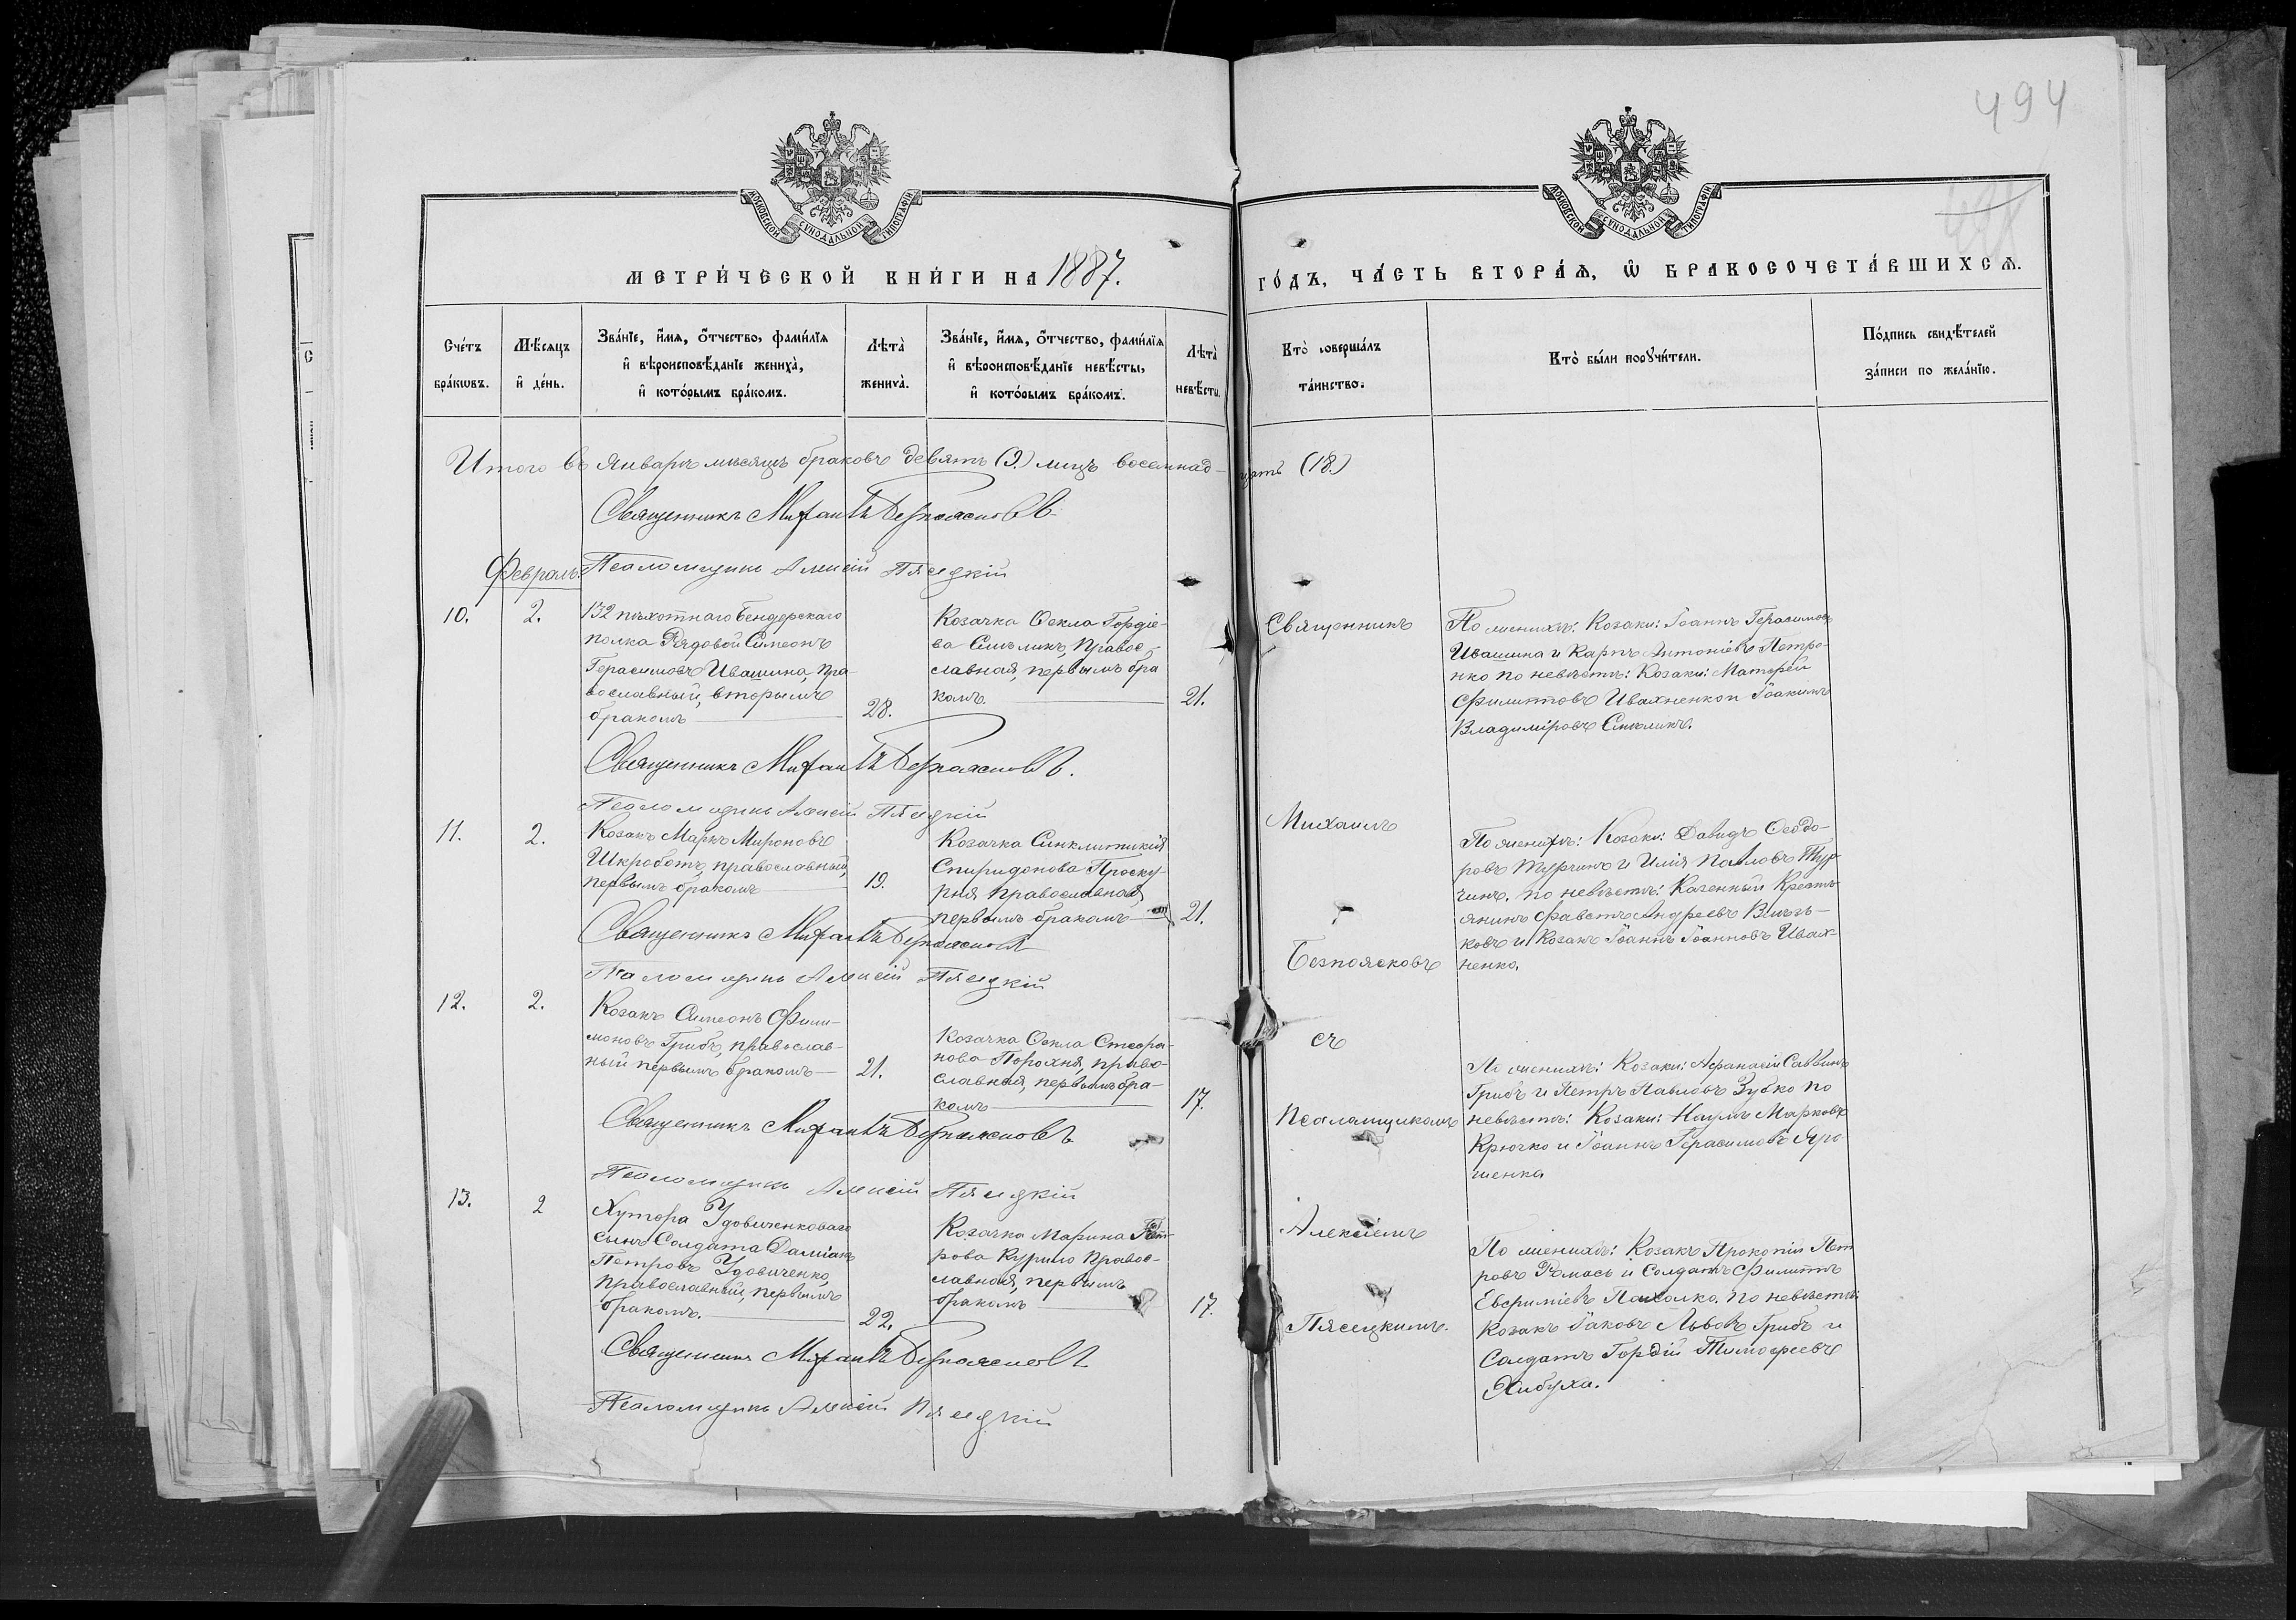 494
МОСКОВСКОЙ СУНОДАЛЬНОЙ ТИПОГРАФІИ
МОСКОВСКОЙ СУНОДАЛЬНОЙ ТИПОГРАФІИ
МЕТРИ́ЧЕСКОЙ КНИ́ГИ НА 1887.
ГО́ДЪ, ЧА́СТЬ ВТОРА́Ѧ, Ѡ БРАКОСОЧЕТА́ВШИХСѦ.
Сче́тъ
бра́кѡвъ.
Мѣ́сяцъ
и҆ де́нь.
Зва́нїе, и҆́мѧ, ѻ҆́тчество, фами́лїѧ
и҆ вѣроисповѣ́данїе жениха̀,
и҆ кото́рымъ бра́комъ.
Лѣта̀
жениха̀.
Зва́нїе, и҆́мѧ, ѻ҆́тчество, фами́лїѧ
и҆ вѣроисповѣ́данїе невѣ́сты,
и҆ кото́рымъ бра́комъ.
Лѣта̀
невѣ́сты.
Кто̀ соверша́лъ
та́инство.
Кто̀ бы́ли порꙋчи́тели.
По́дпись свидѣ́телей
за́писи по жела́нїю.
Итого въ Январѣ мѣсяцѣ браковъ девять (9.) лицъ восемнад-
цать (18.)
Священникъ Михаилъ Безпоясковъ.
Февраль.
Псаломщикъ Алексій Пясецкій
10.
2.
132 пѣхотнаго Бендерскаго
полка Рядовой Симеонъ
Герасимовъ Ивашина, пра-
вославный, вторымъ
бракомъ
28.
Козачка Ѳекла Гордіе-
ва Синѣликъ, Правос-
славная, первымъ бра
комъ.
21.
Священникъ
По женихѣ: Козаки: Іоаннъ Герасимовъ
Ивашина и Карпъ Антоніевъ Петре-
нко по невѣстѣ: Козаки: Матфей
Филипповъ Ивахненко и Іоакимъ
Владиміровъ Синѣликъ.
Священникъ Михаилъ Безпоясковъ.
Псаломщикъ Алексій Пясецкій
11.
2.
Козакъ Маркъ Мироновъ
Шкроботъ, православный,
первымъ бракомъ
19.
Козачка Синклитикія
Спиридонова Проску-
рня православная,
первымъ бракомъ
21.
Михаилъ
По женихѣ: Козаки: Давидъ Ѳеодо-
ровъ Турчинъ и Илія Павловъ Тур-
чинъ, по невѣстѣ: Казенный Кресть-
янинъ Фавстъ Андреевъ
ковъ и Козакъ Іоаннъ Іоанновъ Ивах-
ненко.
Безпоясковъ
Священникъ Михаилъ Безпоясковъ
Псаломщикъ Алексій Пясецкій
12.
2.
Козакъ Симеонъ Фили-
моновъ Грибъ, православ-
ный первымъ бракомъ
21.
Козачка Ѳекла Стефа-
нова Порохня, право-
славная, первымъ бра-
комъ
17.
съ
Псаломщикомъ
По женихѣ: Козаки: Афанасій Саввинъ
Грибъ и Петръ Павловъ Зубко по
невѣстѣ: Козаки: Наумъ Марковъ
Крючко и Іоаннъ Герасимовъ Яро-
шенка
Священникъ Михаилъ Безпоясковъ
Псаломщикъ Алексій Пясецкій
13.
2
Хутора Удовиченковаго
сынъ Солдата Даміанъ
Петровъ Удовиченко,
православный, первымъ
бракомъ.
22.
Козачка Марина Пет-
рова Курило правос-
славная, первымъ
бракомъ
17.
Алексіемъ
Пясецкимъ.
По женихѣ: Козакъ Прокопій Пет
ровъ Ромась и Солдатъ Филиппъ
Евфиміевъ Пахалко. по невѣстѣ:
Козакъ Іаковъ Львовъ Грибъ и
Солдатъ Гордій Тимофеевъ
Хибуха.
Священникъ Михаилъ Безпоясковъ
Псаломщикъ Алексій Пясецкій